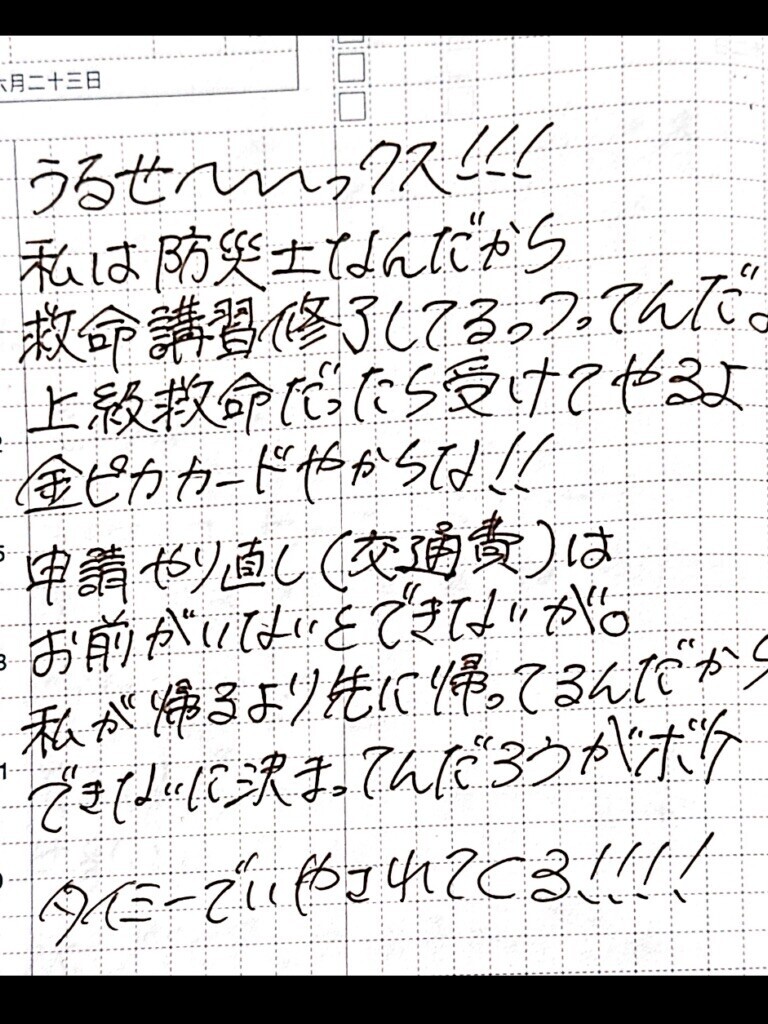 六月二十三日
うるせ〜〜〜っクス!!!
私は防災士なんだから
救命講習修了してるっつってんだよ
上級救命だったら受けてやるよ
金ピカカードやからな!!
申請やり直し(交通費)は
お前がいないとできないが。
私が帰るより先に帰ってるんだから
できないに決まってんだろうがボケ
タイミーでいやされてくる!!!!